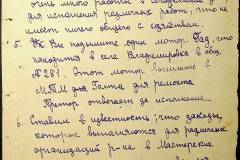 очень много работы в
для исполнения различных работ, что не
имеет ничего общего с
5. Вы подымите один мотор Гад, что
находится в селе Владимировка в
№ 281. Этот мотор вышлите в
М.Т.М. для ремонта
Претор отвечает за исполнение.
6. Ставим в известность, что заказы,
которые выполняются для различных
организаций р-на в Мастерских